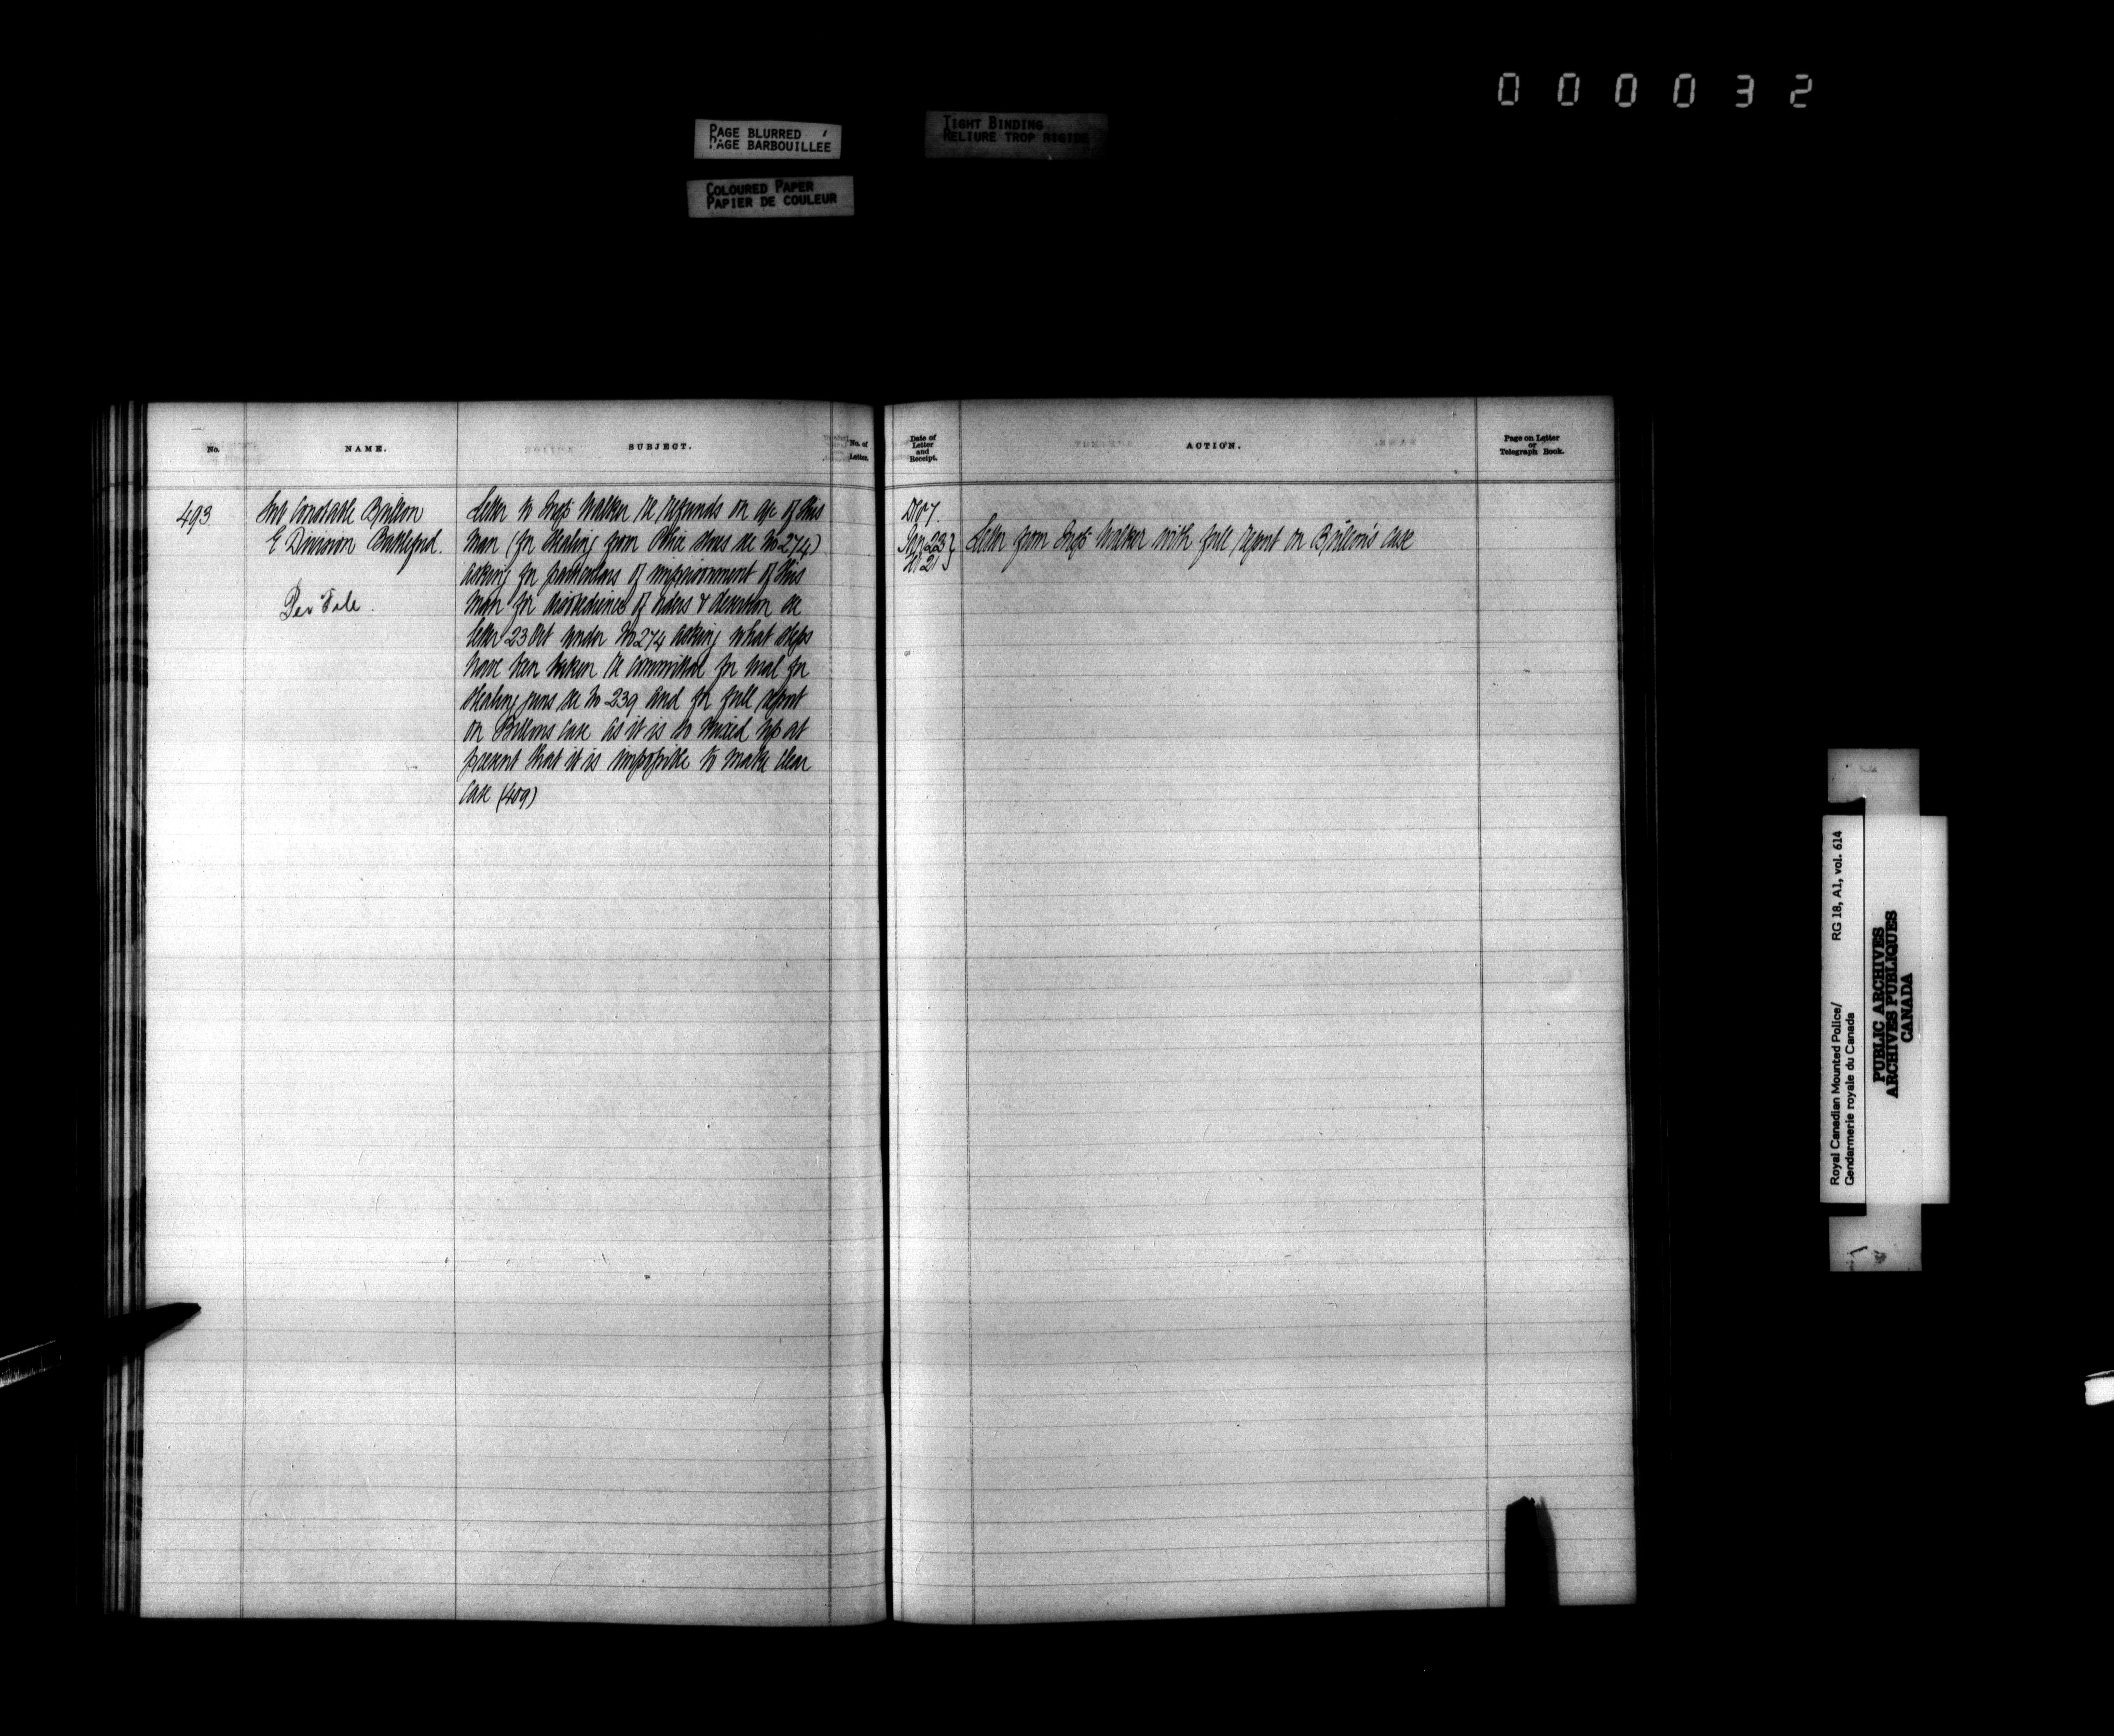 000032
PAGE BLURRED
PAGE BARBOUILLÉE
TIGHT BINDING
RELIURE TROP RIGIDE
COLOURED PAPER
PAPIER DE COULEUR
No.
NAME.
SUBJECT.
No. of
Letter.
493
Sub Constable
E Division Battleford.
Letter to Supt Walker re refunds on a/c of this
man (for stealing from Police Stores see No 274)
asking for particulars of imprisonment of this
man for disobedience of orders & desertion see
letter 23 Oct under No 274 asking what steps
have been taken re committal for trial for
stealing see No 239 and for full report
on case as it is so mixed up at
present that it is impossible to make clear
case (409)
Date of
Letter
and
Receipt.
ACTION.
Page on Letter
or
Telegraph Book.
Letter from Supt Walker with full report on case
Royal Canadian Mounted Police/
Gendarmerie royale du Canada
RG 18, A1, vol. 614
PUBLIC ARCHIVES
ARCHIVES PUBLIQUES
CANADA